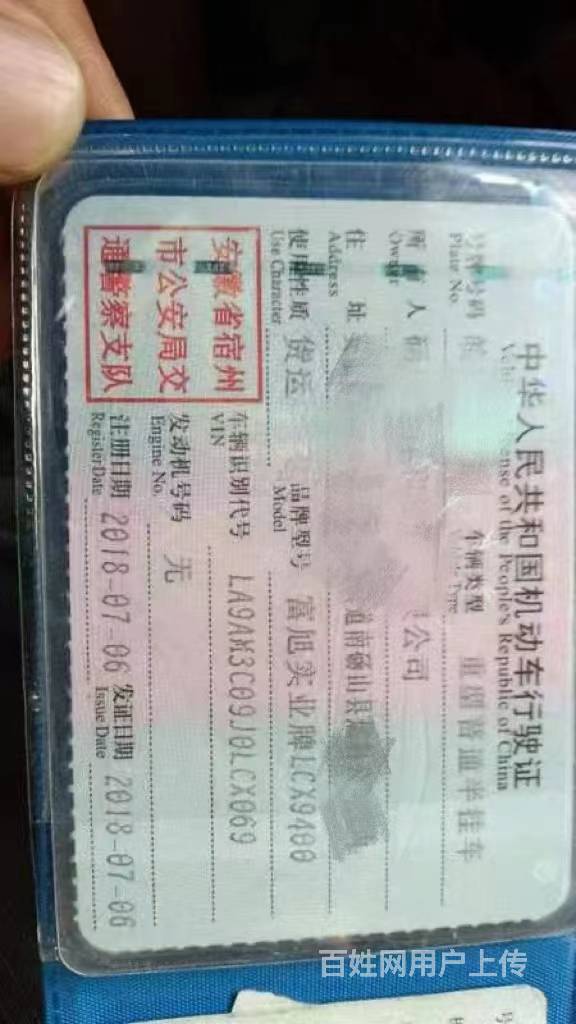 中华人民共和国机动车行驶证
ense of the People's Republic of China
号牌号码
Plate No.
车辆类型 重型普通半挂车
所有人 公司
Owner
住 址 道南砀山县
Address
使用性质 货运 品牌型号 富旭实业牌LCX9400
Use Character Model
安徽省宿州
市公安局交
通警察支队
车辆识别代号 LA9AM3C09J0LCX069
VIN
发动机号码 无
Engine No.
注册日期 2018-07-06 发证日期 2018-07-06
Register Date Issue Date
百姓网用户上传